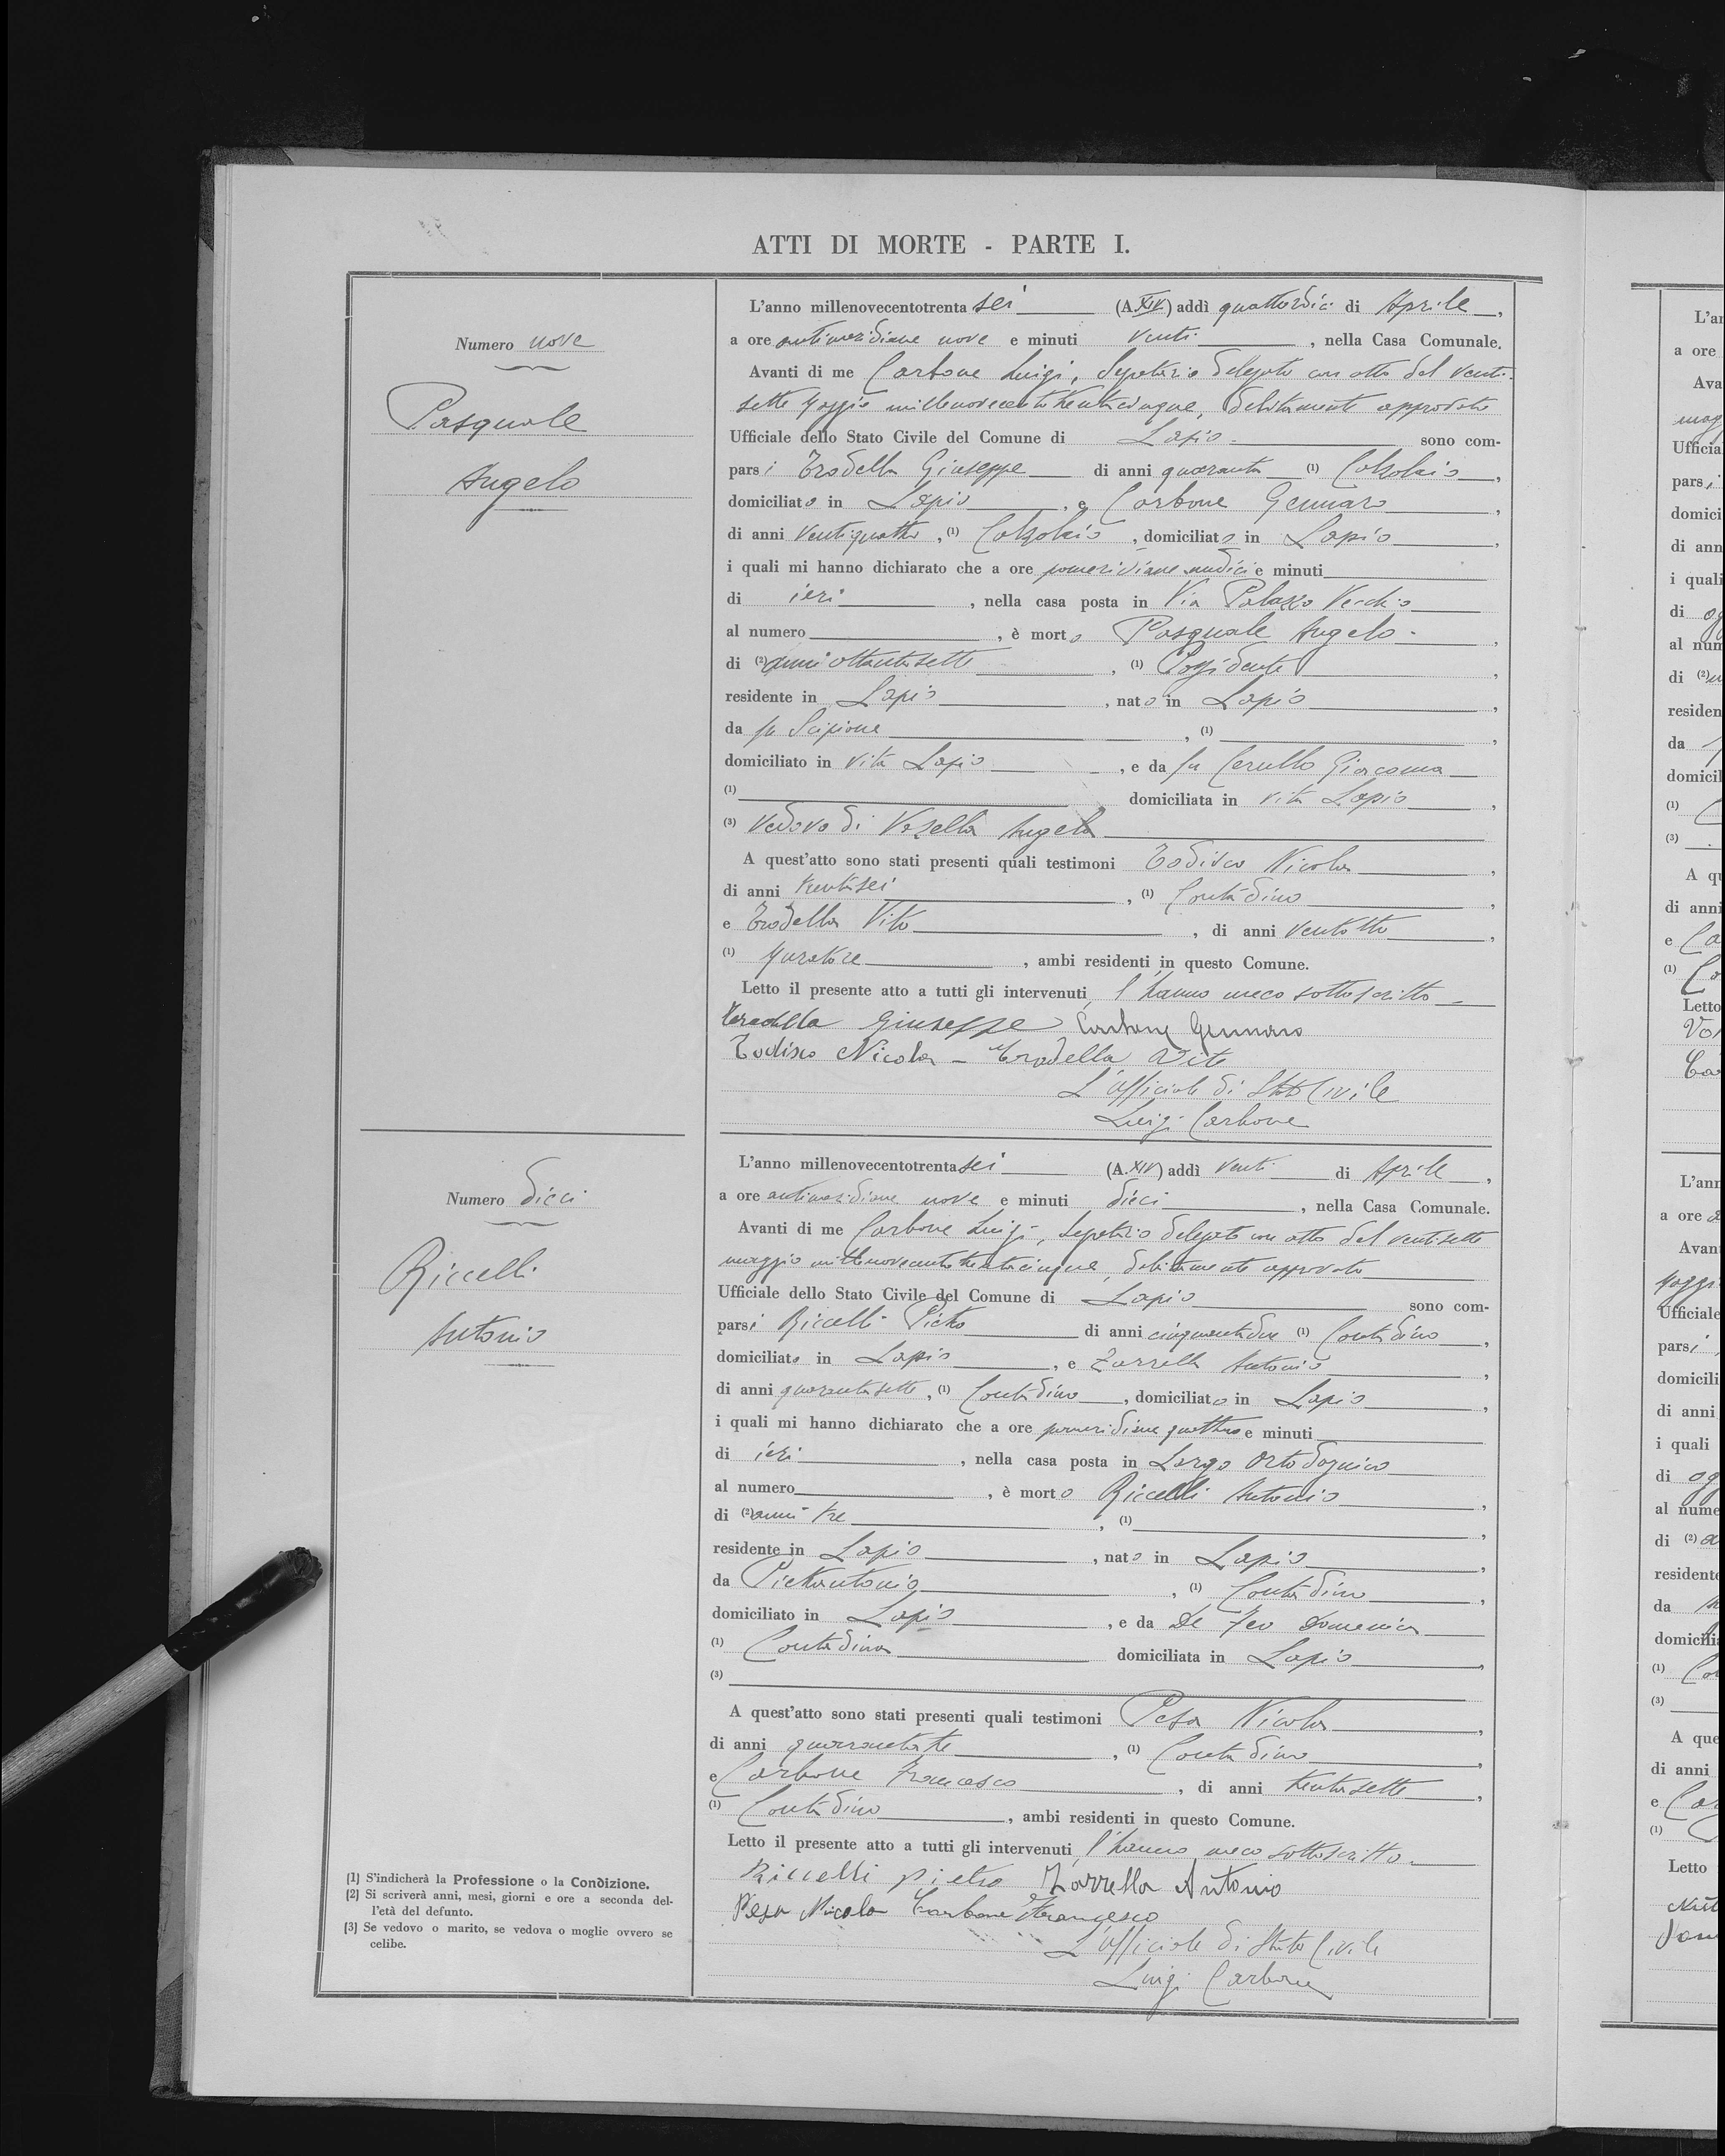 ATTI DI MORTE - PARTE I.
Numero nove
Pasquale
Angelo
L'anno millenovecentotrenta sei (A. XIV) addì quattordici di Aprile,
a ore antimeridiane nove e minuti venti, nella Casa Comunale.
Avanti di me Carbone Luigi, Segretario delegato con atto del venti-
sette Maggio millenovecentotrentacinque, debitamente approvato
Ufficiale dello Stato Civile del Comune di Lapio sono com-
parsi Trodella Giuseppe di anni quaranta (1) Calzolaio,
domiciliato in Lapio, e Carbone Gennaro,
di anni ventiquattro, (1) Calzolaio, domiciliato in Lapio,
i quali mi hanno dichiarato che a ore pomeridiane undici e minuti
di ieri, nella casa posta in Via Palazzo Vecchio
al numero, è morto Pasquale Angelo.,
di (2) anni ottantasette, (1) Possidente,
residente in Lapio, nato in Lapio,
da fu Scipione, (1),
domiciliato in vita Lapio, e da fu Cerullo Giacoma
(1) domiciliata in vita Lapio,
(3) Vedovo di Vosella Angela
A quest'atto sono stati presenti quali testimoni Todisco Nicola,
di anni trentasei, (1) Contadino,
e Trodella Vito, di anni ventotto,
(1) Muratore, ambi residenti in questo Comune.
Letto il presente atto a tutti gli intervenuti, l'hanno meco sottoscritto
Trodella Giuseppe Carbone Gennaro
Todisco Nicola - Trodella Vito
L'ufficiale di Stato Civile
Luigi Carbone
Numero dieci
Riccelli
Antonio
L'anno millenovecentotrenta sei (A. XIV) addì venti di Aprile,
a ore antimeridiane nove e minuti dieci, nella Casa Comunale.
Avanti di me Carbone Luigi, Segretario delegato con atto del ventisette
maggio millenovecentotrentacinque, debitamente approvato
Ufficiale dello Stato Civile del Comune di Lapio sono com-
parsi Riccelli Pietro di anni cinquantadue (1) Contadino,
domiciliato in Lapio, e Zarrella Antonio,
di anni quarantasette, (1) Contadino, domiciliato in Lapio,
i quali mi hanno dichiarato che a ore pomeridiane quattro e minuti
di ieri, nella casa posta in Largo Orto
al numero, è morto Riccelli Antonio,
di (2) anni tre, (1),
residente in Lapio, nato in Lapio,
da Pietrantonio, (1) Contadino,
domiciliato in Lapio, e da De Feo Domenica
(1) Contadina domiciliata in Lapio,
(3)
A quest'atto sono stati presenti quali testimoni Pesa Nicola,
di anni quarantatre, (1) Contadino,
e Carbone Francesco, di anni trentasette,
(1) Contadino, ambi residenti in questo Comune.
Letto il presente atto a tutti gli intervenuti, l'hanno meco sottoscritto.
Riccelli Pietro Zarrella Antonio
Pesa Nicola Carbone Francesco
L'ufficiale di Stato Civile
Luigi Carbone
(1) S'indicherà la Professione o la Condizione.
(2) Si scriverà anni, mesi, giorni e ore a seconda del-
l'età del defunto.
(3) Se vedovo o marito, se vedova o moglie ovvero se
celibe.